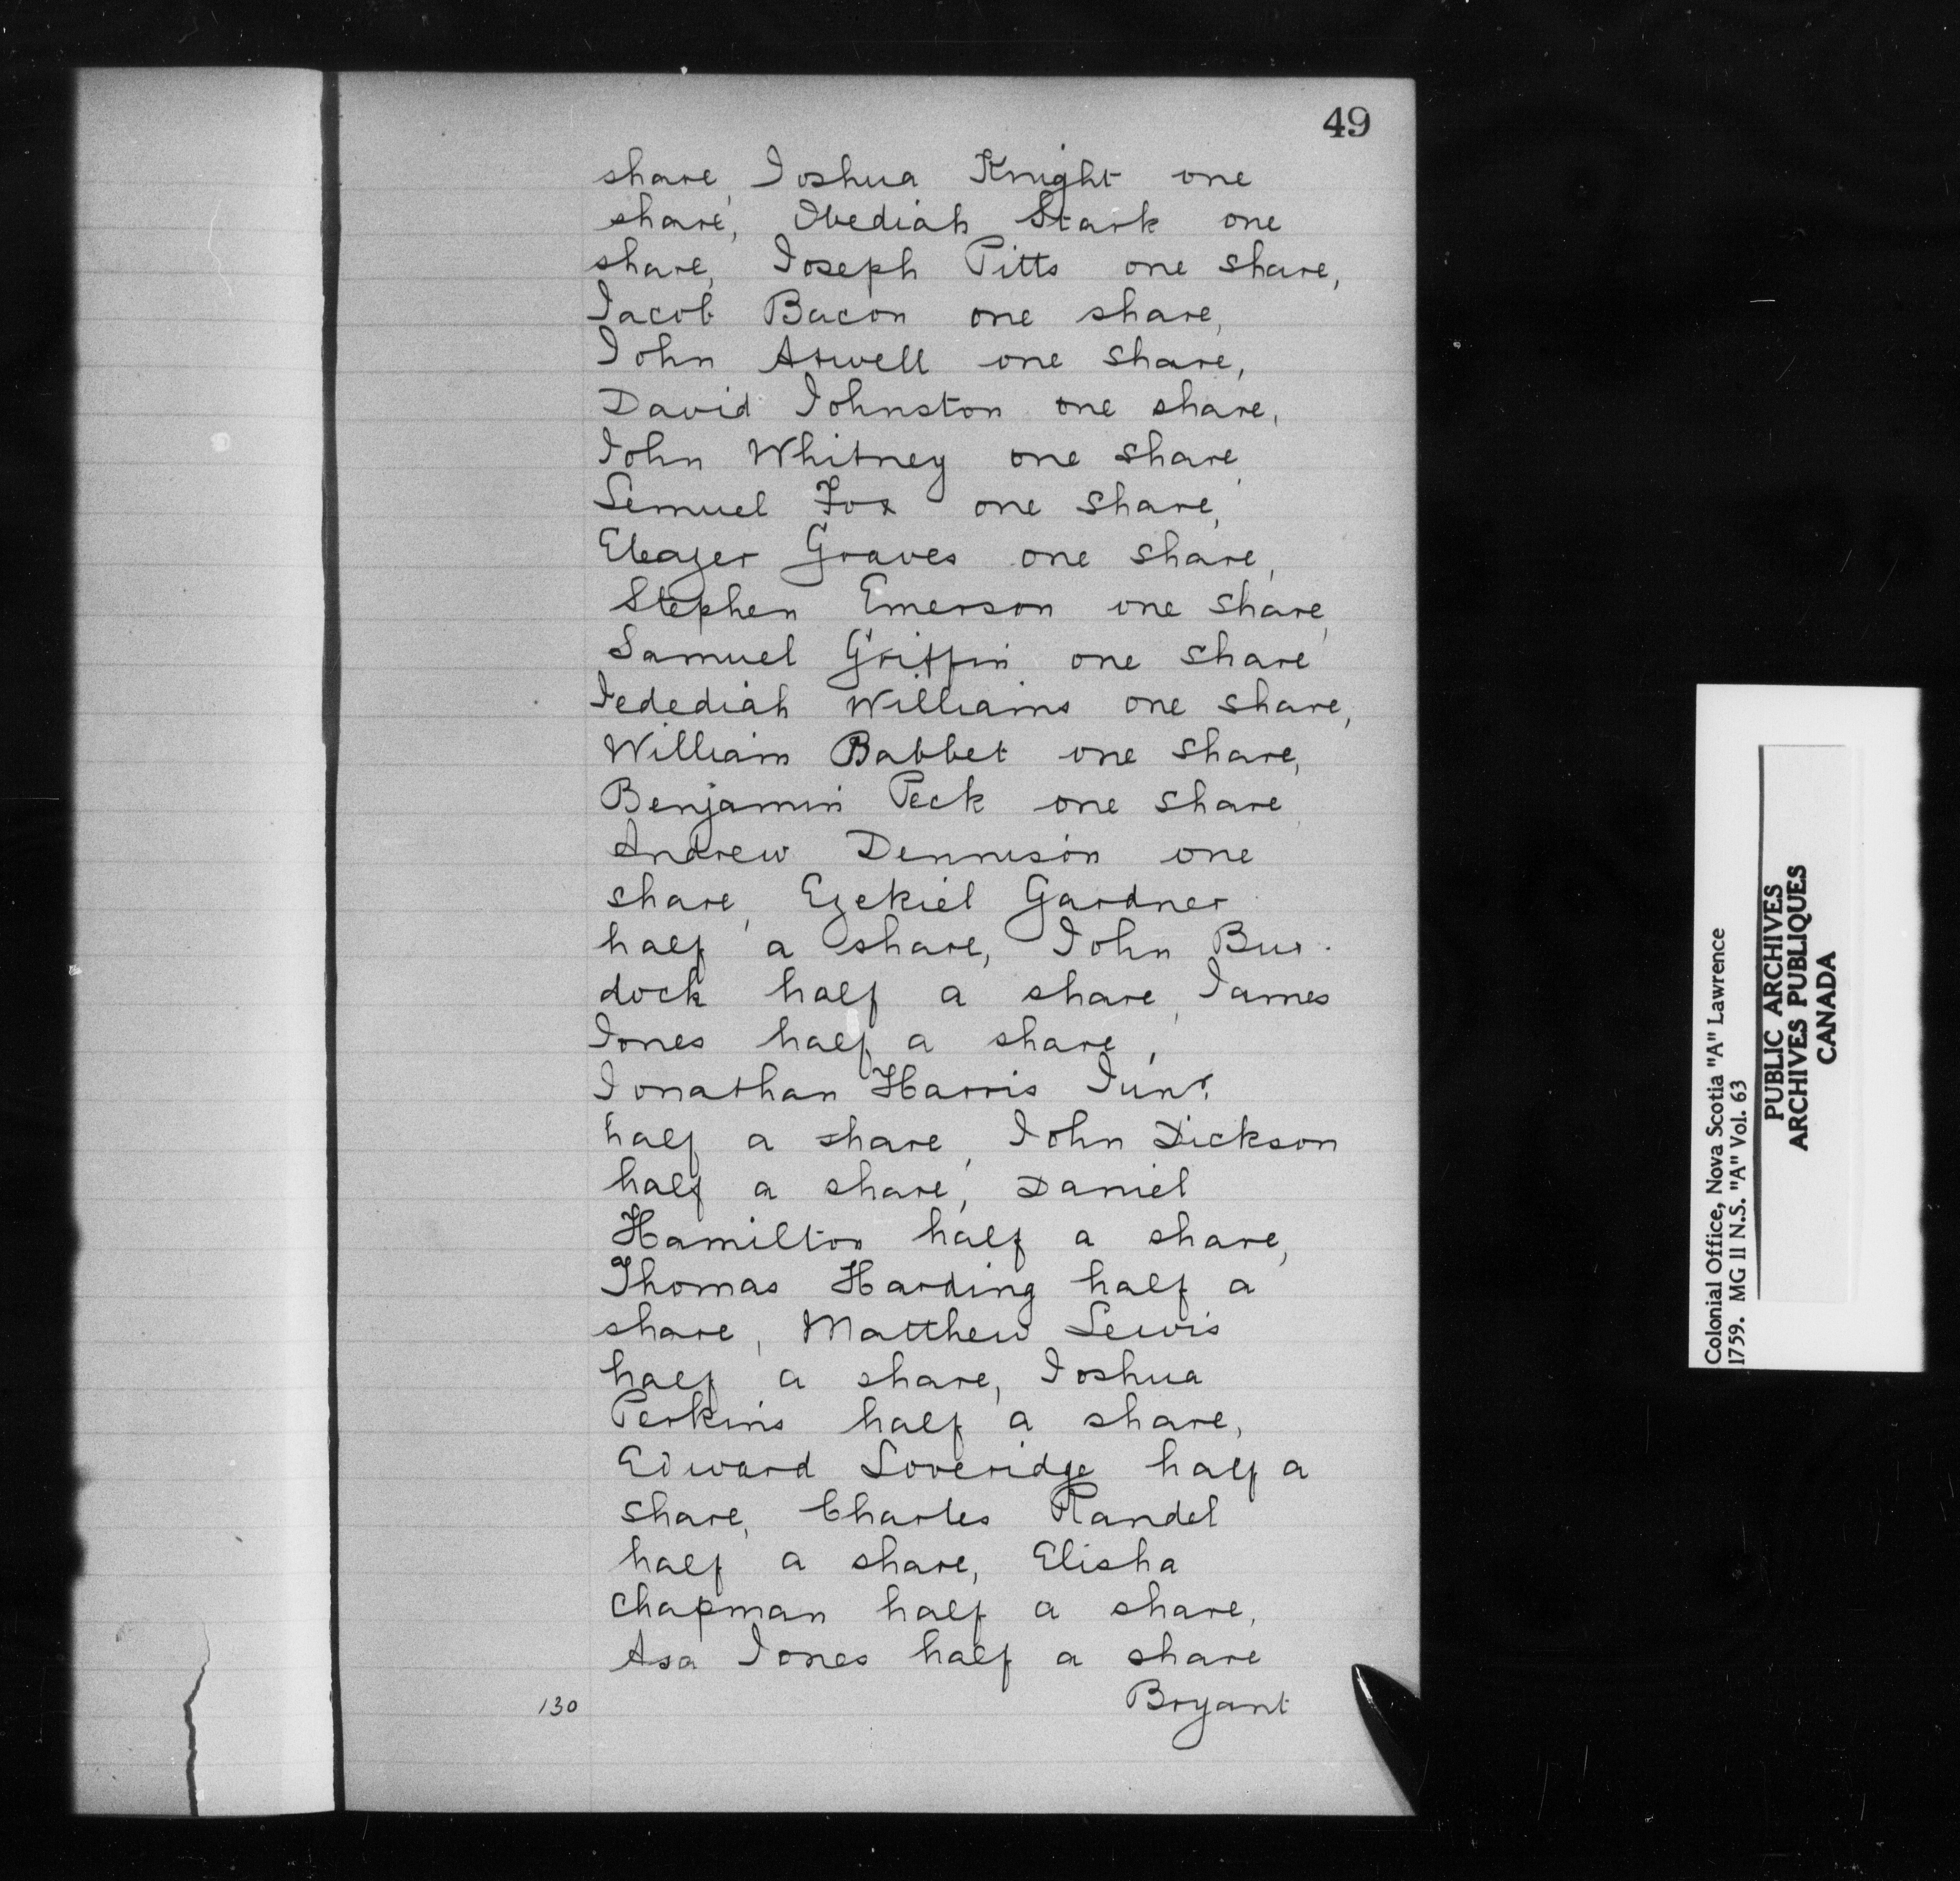 49
share, Joshua Knight one
share, Obediah Stark one
share, Joseph Pitts one share,
Jacob Bacon one share,
John Atwell one share,
David Johnston one share,
John Whitney one share,
Lemuel Fox one share,
Eleazer Graves one share,
Stephen Emerson one share,
Samuel Griffin one share
Jedediah Williams one share,
William Babbet one share,
Benjamin Peck one share,
Andrew Dennison one
share, Ezekiel Gardner
half a share, John Bur-
dock half a share, James
Jones half a share,
Jonathan Harris Junr.
half a share, John Dickson
half a share, Daniel
Hamilton half a share,
Thomas Harding half a
share, Matthew Lewis
half a share, Joshua
Perkins half a share,
Edward Loveridge half a
share, Charles Randel
half a share, Elisha
Chapman half a share,
Asa Jones half a share
130 Bryant
Colonial Office, Nova Scotia "A" Lawrence
1759. MG II N.S. "A" Vol. 63
PUBLIC ARCHIVES
ARCHIVES PUBLIQUES
CANADA